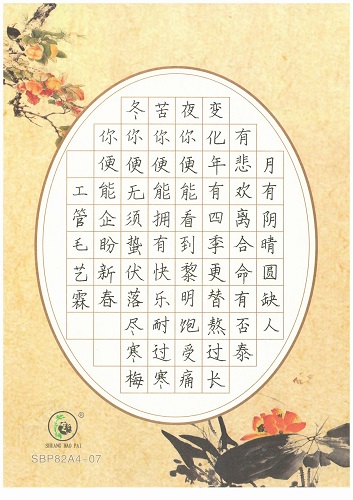 月有阴晴圆缺人
有悲欢离合命有否泰
变化年有四季更替熬过长
夜你便能看到黎明饱受痛
苦你便能拥有快乐耐过寒
冬你便无须蛰伏落尽寒梅
你便能企盼新春
工管毛艺霖
PAI
SBP82A4-07